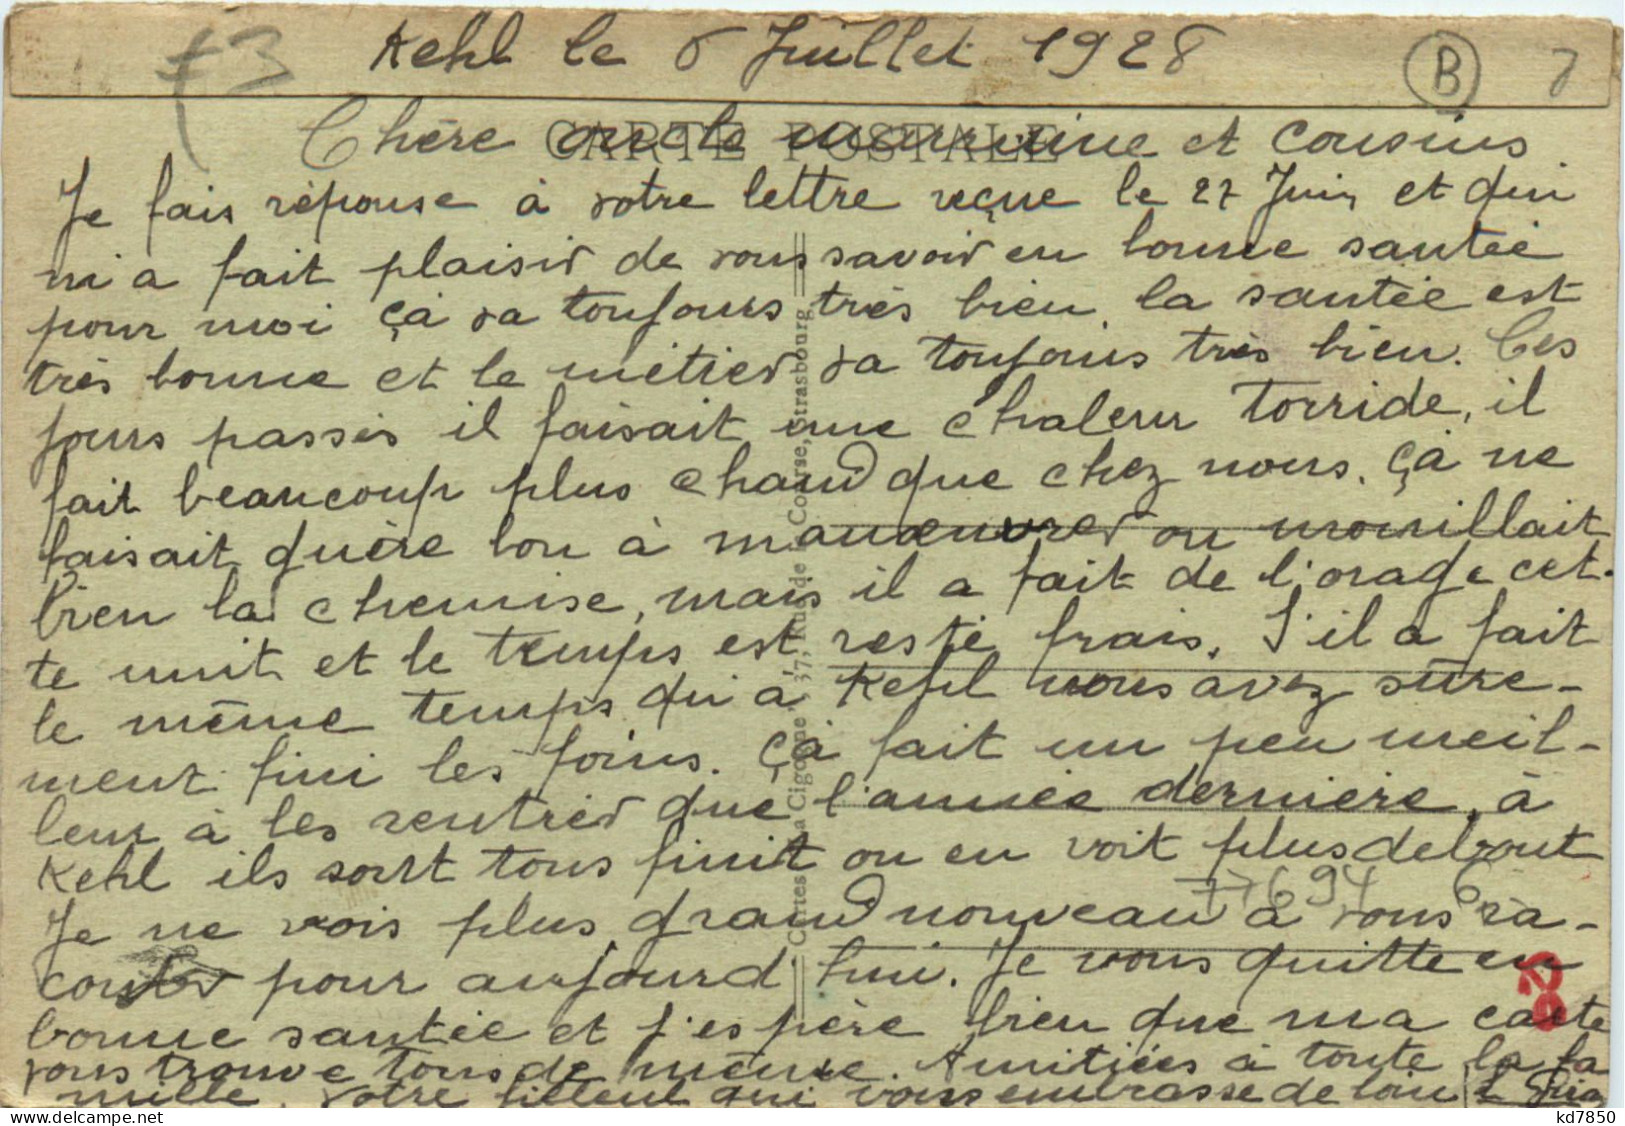 Kehl le 6 Juillet 1928
B
CARTE POSTALE
Chère oncle marraine et cousins
Je fais réponse à votre lettre reçue le 27 Juin et qui
m'a fait plaisir de vous savoir en bonne santée
pour moi çà va toujours très bien la santée est
très bonne et le métier va toujours très bien. Ces
jours passés il faisait une chaleur torride, il
fait beaucoup plus chaud que chez nous. çà ne
faisait guère bon à manœuvrer on mouillait
bien la chemise, mais il a fait de l'orage cet-
te nuit et le temps est resté frais. S'il a fait
le même temps qu'à Kehl vous avez sûre-
ment fini les foins. Çà fait un peu meil-
leur à les rentrer que l'année dernière, à
Kehl ils sont tous finit on en voit plus debout
77694
Je ne vois plus grand nouveau à vous ra-
conter pour aujourd'hui. Je vous quitte en
bonne santée et j'espère bien que ma carte
vous trouve tous de même. Amitiées à toute la fa
mille. Votre filleul qui vous embrasse de loin
Cartes La Cigogne, 37, Rue de la Course, Strasbourg
kd7850